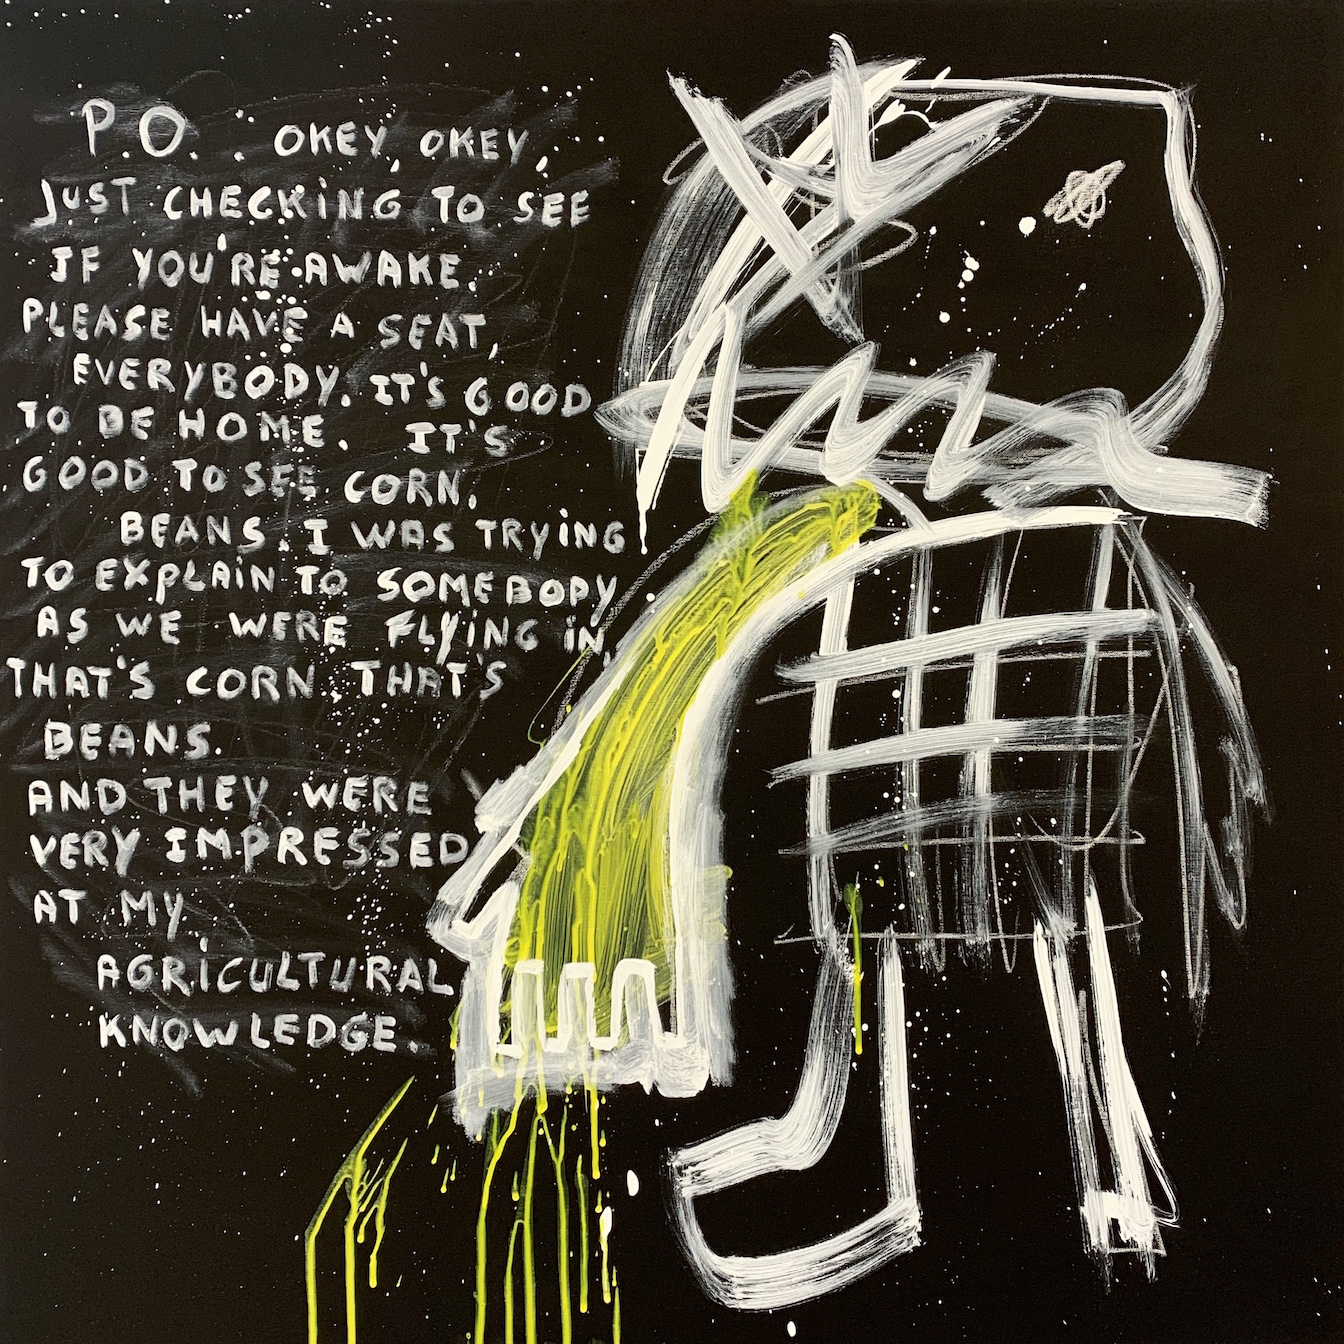 P.O. . OKEY, OKEY,
JUST CHECKING TO SEE
IF YOU'RE AWAKE.
PLEASE HAVE A SEAT,
EVERYBODY. IT'S GOOD
TO BE HOME. IT'S
GOOD TO SEE CORN.
BEANS. I WAS TRYING
TO EXPLAIN TO SOMEBODY
AS WE WERE FLYING IN,
THAT'S CORN. THAT'S
BEANS.
AND THEY WERE
VERY IMPRESSED
AT MY
AGRICULTURAL
KNOWLEDGE.